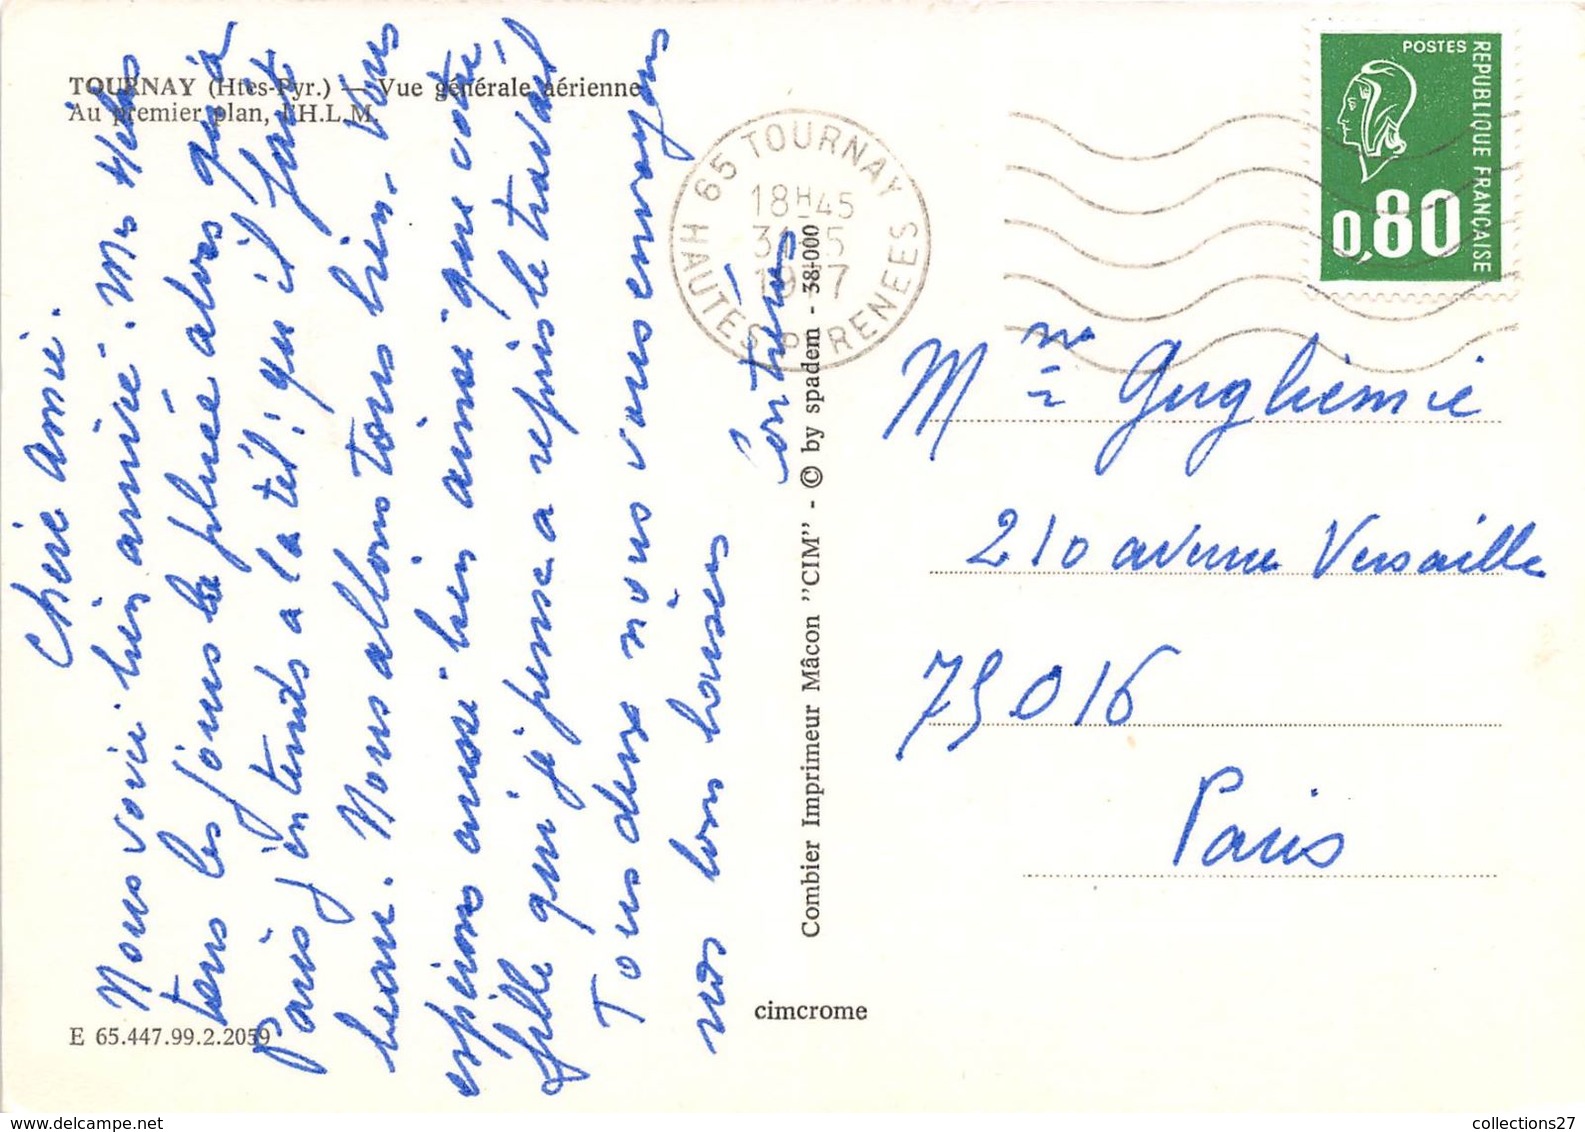 TOURNAY (Htes-Pyr.) — Vue générale aérienne
Au premier plan, l'H.L.M.
Chère amie.
Nous voici bien arrivé. Mr Hebs
tous les jours la pluie alors qu'à
Paris j'entends a la tél! qu'il fait
beau. Nous allons tous bien. Vous
espérons aussi bien ainsi que votre
fille qui je pense a repris le travail
Tous deux nous vous envoyons
nos bons baisers
65 TOURNAY
18H45
31-5
HAUTES PYRENEES
POSTES
REPUBLIQUE FRANÇAISE
0,80
Mme Gugliemie
210 avenue Versaille
75016
Paris
Combier Imprimeur Mâcon "CIM" - © by spadem - 38-000
cimcrome
E 65.447.99.2.2059
collections27